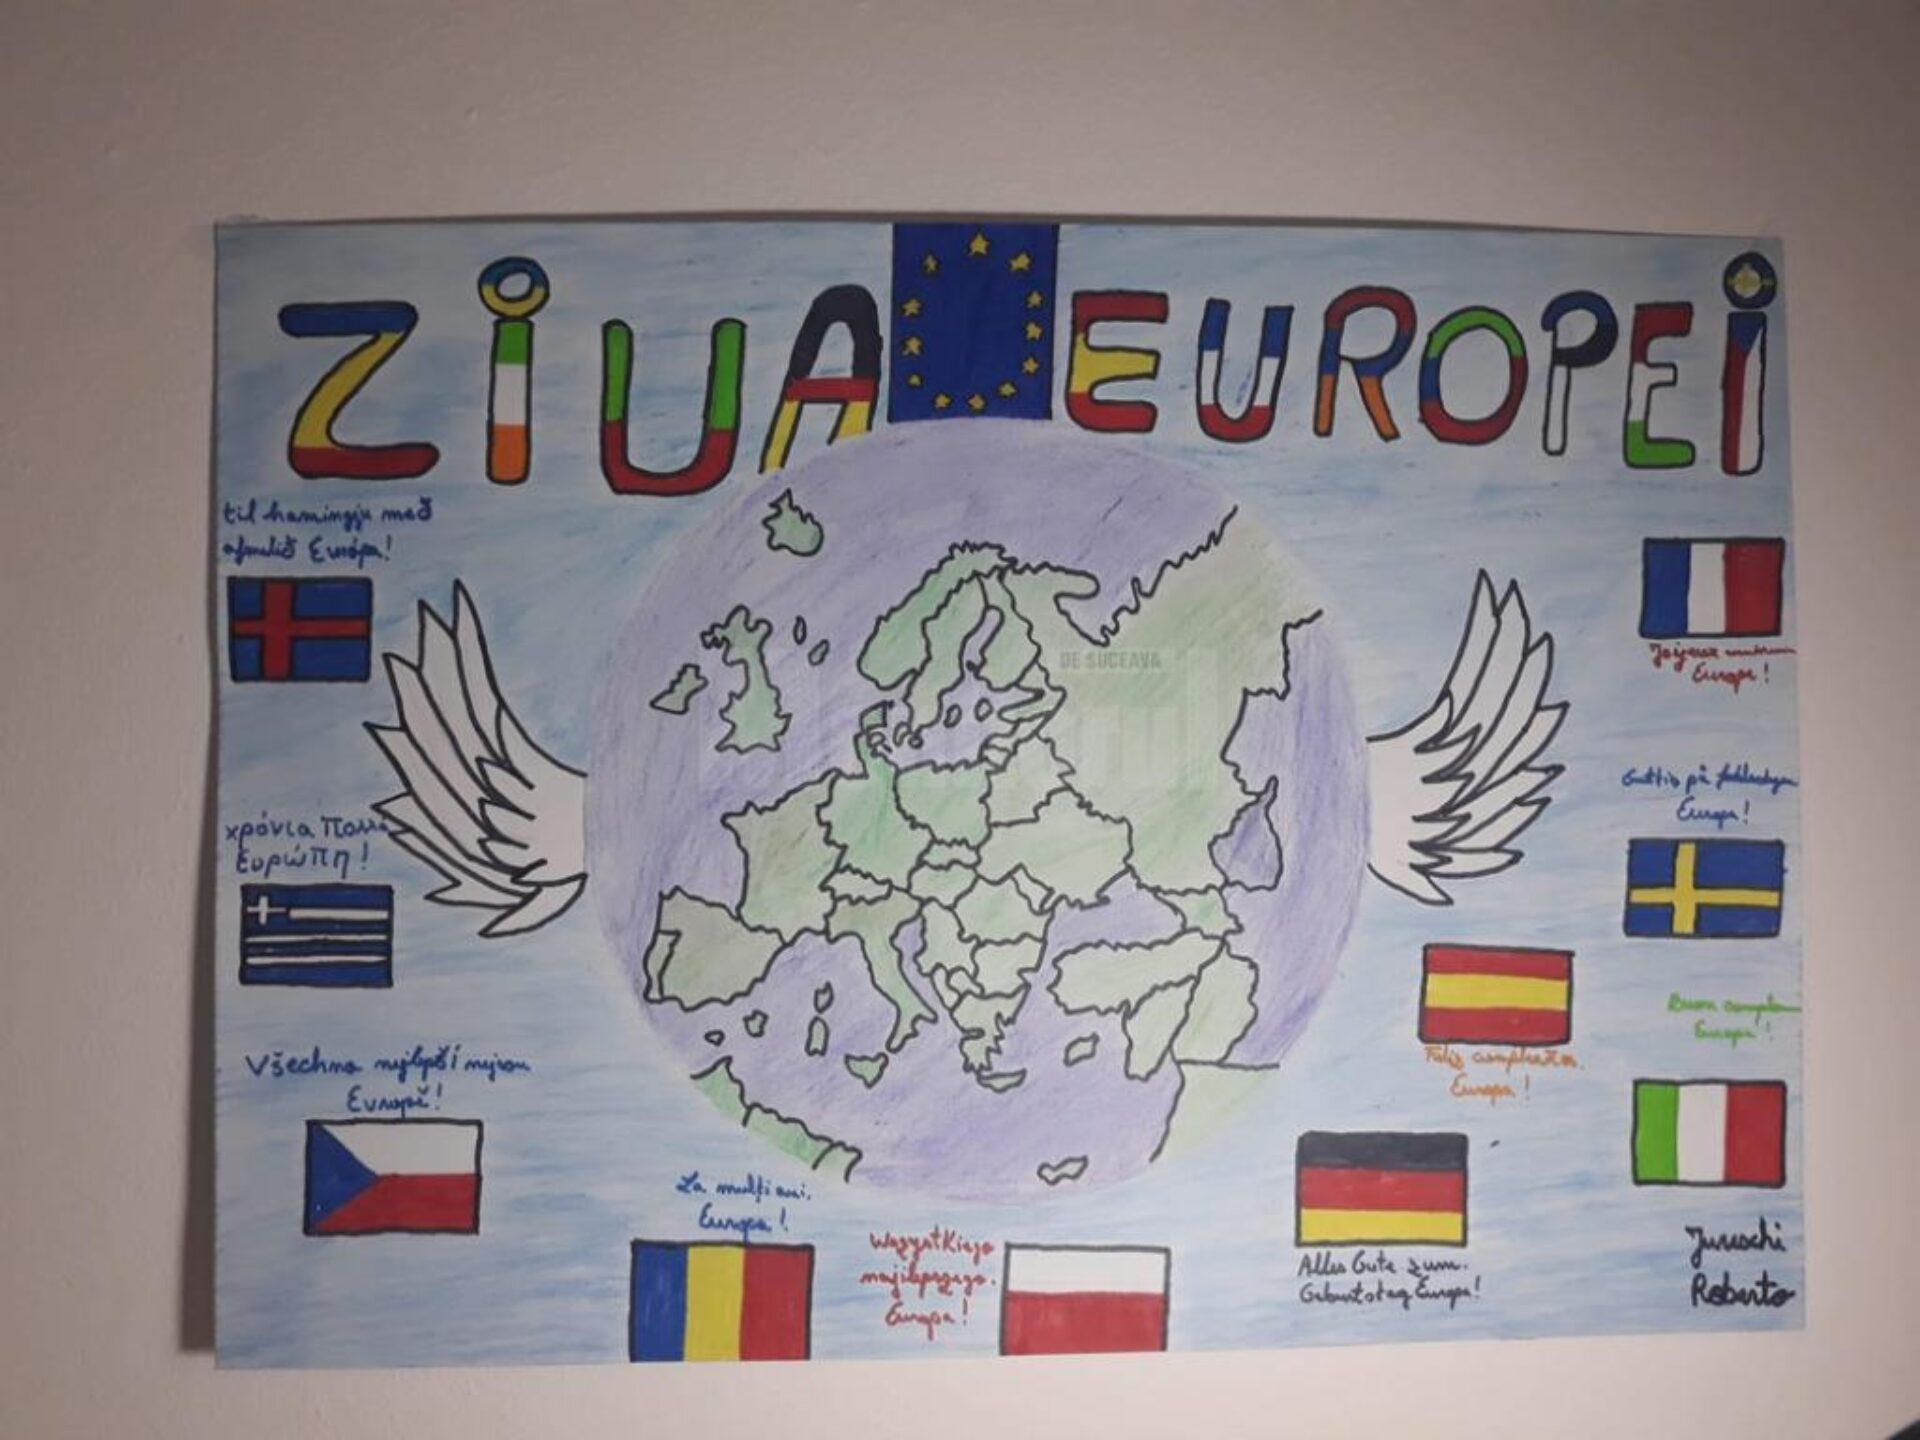 ZIUA EUROPEI
til hamingju með
afmælið Európa!
χρόνια πολλά
Ευρώπη!
Všechno nejlepší nejrou
Evropě!
La mulți ani,
Europa!
Wszystkiego
najlepszego,
Europa!
Alles Gute zum
Geburtstag Europa!
Feliz cumpleaños
Europa!
Europe!
Grattis på födelsedagen
Europa!
Buon complea
Europa!
Juraschi
Roberto
DE SUCEAVA